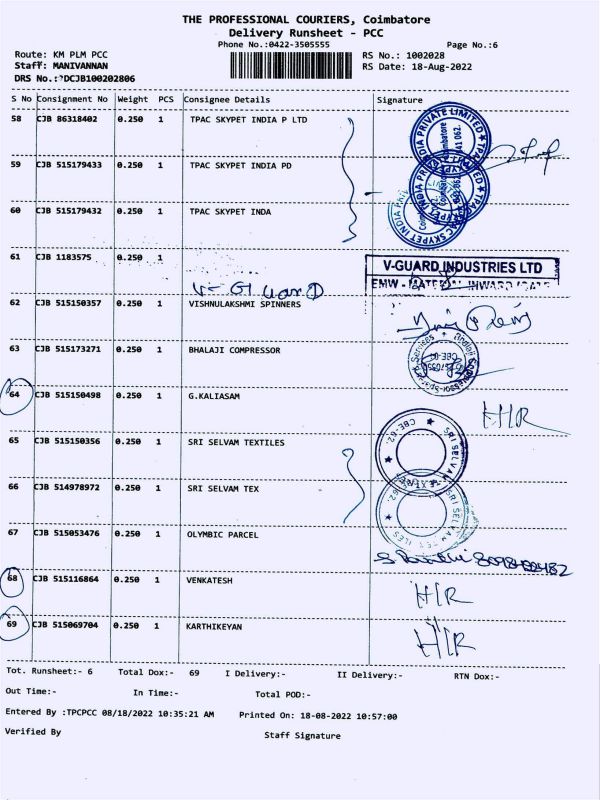 THE PROFESSIONAL COURIERS, Coimbatore
Delivery Runsheet - PCC
Phone No.:0422-3505555 Page No.:6
Route: KM PLM PCC RS No.: 1002028
Staff: MANIVANNAN RS Date: 18-Aug-2022
DRS No.:?DCJB100202806
S No Consignment No Weight PCS Consignee Details Signature
58 CJB 86318402 0.250 1 TPAC SKYPET INDIA P LTD
59 CJB 515179433 0.250 1 TPAC SKYPET INDIA PD
60 CJB 515179432 0.250 1 TPAC SKYPET INDA
61 CJB 1183575 0.250 1
V-GUARD INDUSTRIES LTD
EMW - MATERIAL INWARD
V-Guard
62 CJB 515150357 0.250 1 VISHNULAKSHMI SPINNERS
63 CJB 515173271 0.250 1 BHALAJI COMPRESSOR
64 CJB 515150498 0.250 1 G.KALIASAM
HIR
65 CJB 515150356 0.250 1 SRI SELVAM TEXTILES
SRI SELVAM TEXTILES CBE-62.
66 CJB 514978972 0.250 1 SRI SELVAM TEX
67 CJB 515053476 0.250 1 OLYMBIC PARCEL
68 CJB 515116864 0.250 1 VENKATESH HIR
69 CJB 515069704 0.250 1 KARTHIKEYAN HIR
Tot. Runsheet:- 6 Total Dox:- 69 I Delivery:- II Delivery:- RTN Dox:-
Out Time:- In Time:- Total POD:-
Entered By :TPCPCC 08/18/2022 10:35:21 AM Printed On: 18-08-2022 10:57:00
Verified By Staff Signature